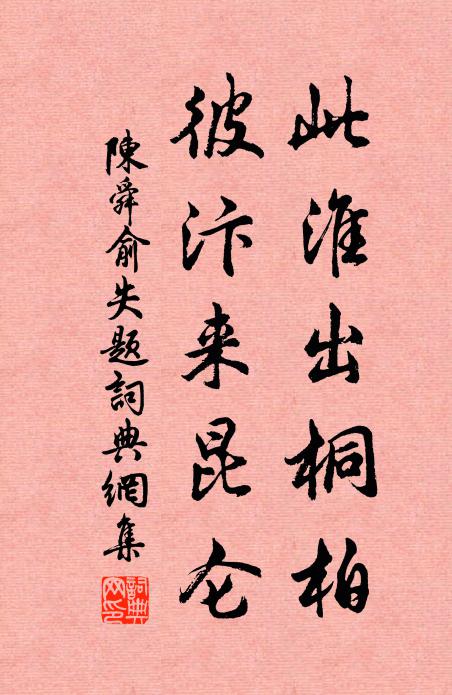 此淮出桐柏
彼汴来昆仑
陳舜俞失题詞典網集
詞典网印